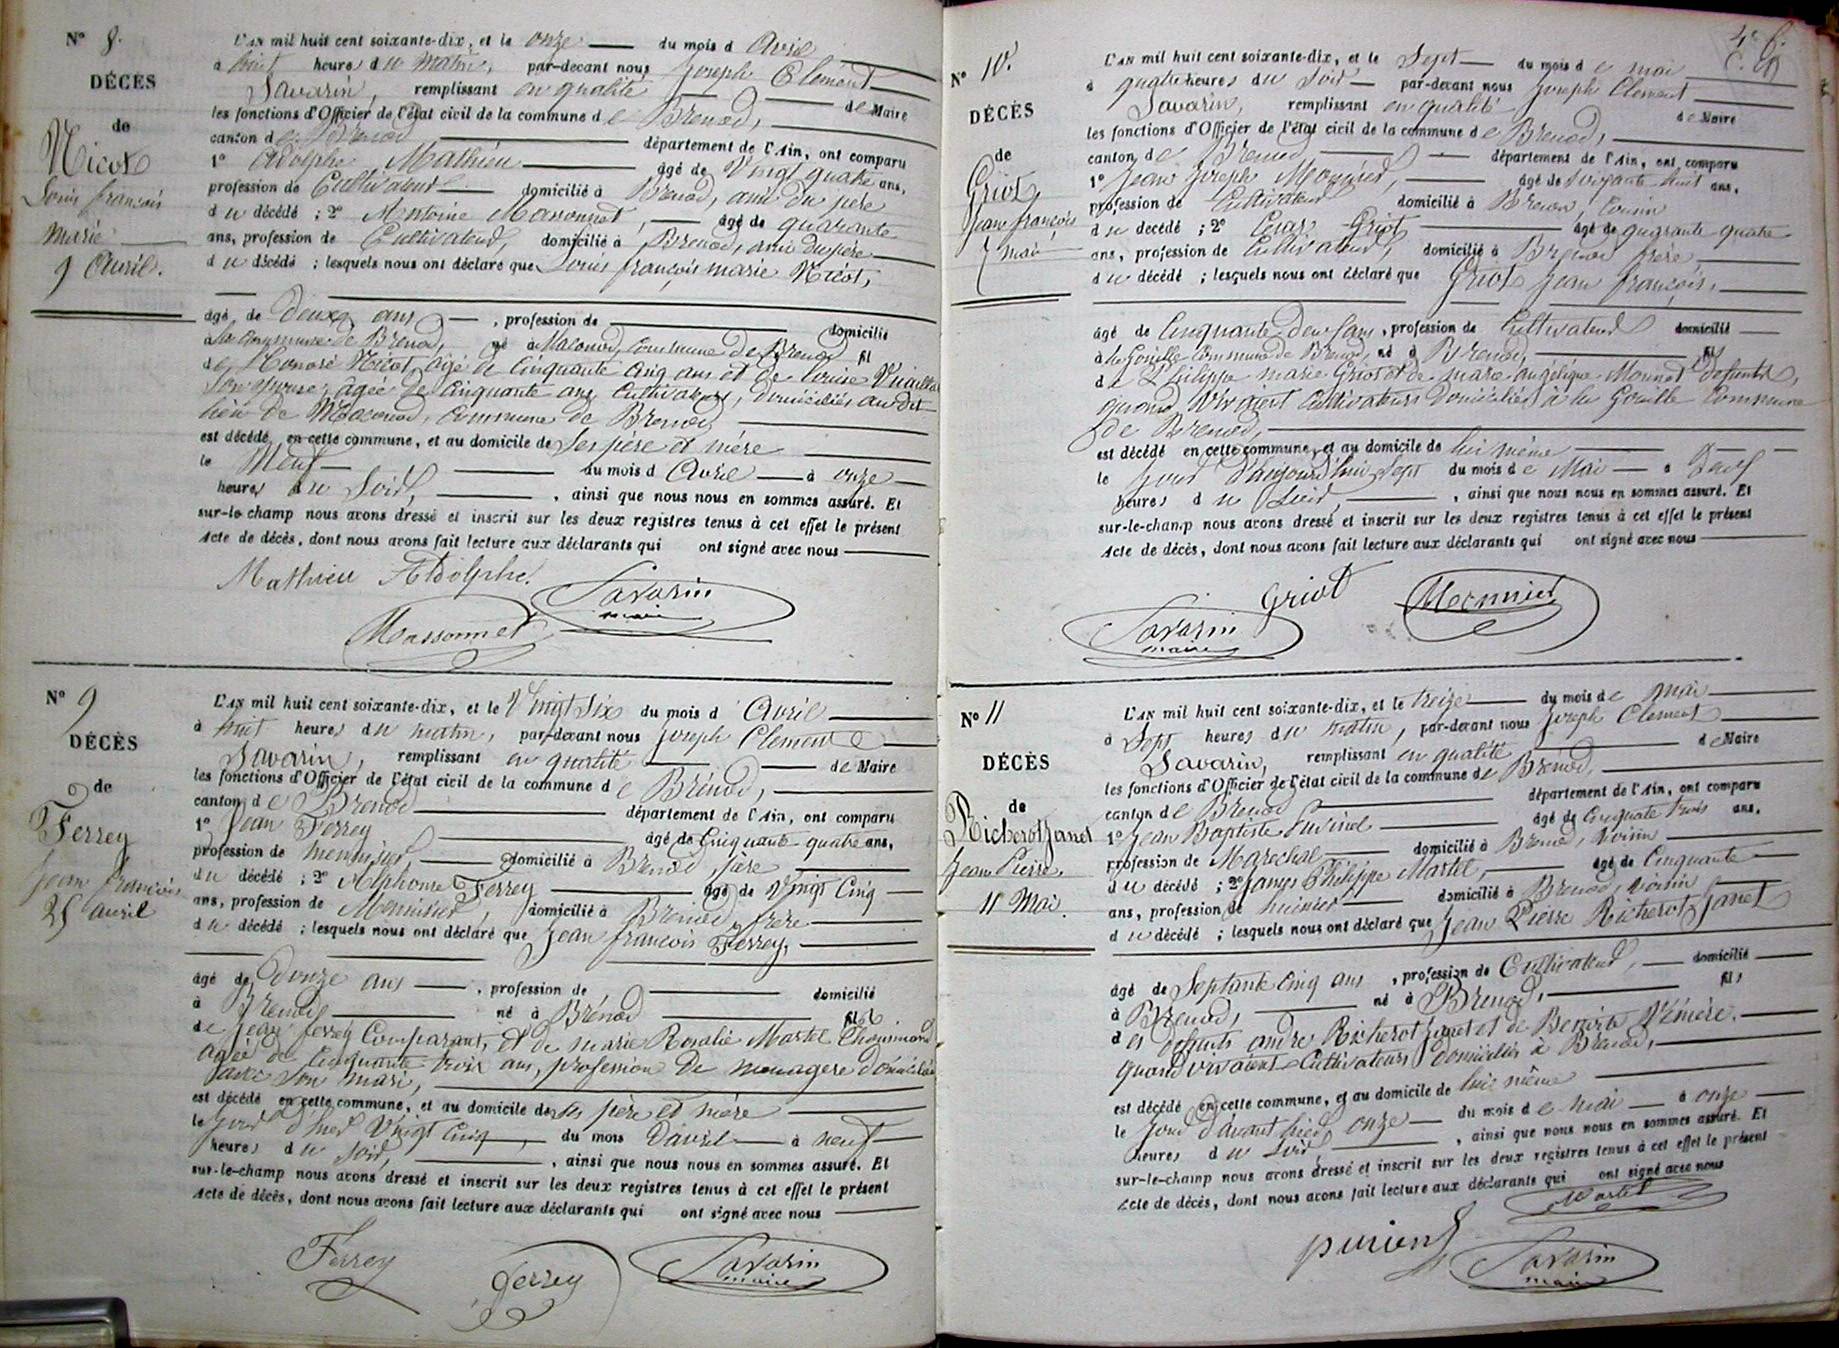 N° 8.
DÉCÈS
de
Nicot
Louis françois
marie
9 Avril.
L'AN mil huit cent soixante-dix, et le onze du mois d Avril
à huit heures du matin, par-devant nous Joseph Clément
Savarin, remplissant en qualité de Maire
les fonctions d'Officier de l'état civil de la commune de Brenod,
canton de Brenod département de l'Ain, ont comparu
1° Adolphe Mathieu âgé de Vingt quatre ans,
profession de Cultivateur domicilié à Brenod, ami du père
du décédé ; 2° Antoine Massonnet, âgé de quarante
ans, profession de Cultivateur, domicilié à Brenod, ami du père
du décédé ; lesquels nous ont déclaré que Louis françois marie Nicot,
âgé de Deux ans, profession de domicilié
à la commune de Brenod, né à Macconod, commune de Brenod fil
de Honoré Nicot, âgé de Cinquante cinq ans et de Louise
son épouse, âgée de Cinquante ans, Cultivateurs, domiciliés au dit
lieu de Macconod, commune de Brenod,
est décédé en cette commune, et au domicile de ses père et mère
le Neuf du mois d Avril à onze
heures du Soir, ainsi que nous nous en sommes assuré. Et
sur-le-champ nous avons dressé et inscrit sur les deux registres tenus à cet effet le présent
Acte de décès, dont nous avons fait lecture aux déclarants qui ont signé avec nous
Mathieu Adolphe.
Savarin
maire
Massonnet
N° 9
DÉCÈS
de
Ferrey
Jean françois
25 avril
L'AN mil huit cent soixante-dix, et le Vingt Six du mois d Avril
à huit heures du matin, par-devant nous Joseph Clément
Savarin, remplissant en qualité de Maire
les fonctions d'Officier de l'état civil de la commune de Brénod,
canton de Brenod département de l'Ain, ont comparu
1° Jean Ferrey âgé de Cinquante quatre ans,
profession de menuisier, domicilié à Brenod, père
du décédé ; 2° Alphonse Ferrey âgé de Vingt Cinq
ans, profession de Menuisier, domicilié à Brenod, frère
du décédé ; lesquels nous ont déclaré que Jean françois Ferrey,
âgé de Douze ans, profession de domicilié
à Brenod né à Brénod fils
de Jean ferrey Comparant, et de marie Rosalie Martel
âgée de Cinquante trois ans, profession De menagere domiciliée
avec son mari,
est décédé en cette commune, et au domicile de ses père et mère
le jour d'hier Vingt Cinq, du mois D'avril à neuf
heures du soir, ainsi que nous nous en sommes assuré. Et
sur-le-champ nous avons dressé et inscrit sur les deux registres tenus à cet effet le présent
Acte de décès, dont nous avons fait lecture aux déclarants qui ont signé avec nous
Ferrey
ferrey
Savarin
maire
N° 10.
DÉCÈS
de
Griot
Jean françois
7 mai
L'AN mil huit cent soixante-dix, et le Sept du mois de mai
à quatre heures du Soir par-devant nous Joseph Clément
Savarin, remplissant en qualité de Maire
les fonctions d'Officier de l'état civil de la commune de Brenod,
canton de Brenod département de l'Ain, ont comparu
1° Jean Joseph Monnier, âgé de soixante huit ans,
profession de Cultivateur domicilié à Brenod, Cousin
du décédé ; 2° César Griot âgé de quarante quatre
ans, profession de Cultivateur, domicilié à Brenod frère
du décédé ; lesquels nous ont déclaré que Griot Jean françois,
âgé de Cinquante Deux ans, profession de Cultivateur domicilié
à la Gouille Commune de Brenod, né à Brenod, fils
de Philippe marie Griot et de marie angélique Monnet Defunts,
quand Vivaient Cultivateurs Domiciliés à la Gouille Commune
de Brenod,
est décédé en cette commune, et au domicile de lui même
le jour D'aujourd'hui Sept du mois de Mai à Deux
heures du Soir, ainsi que nous nous en sommes assuré. Et
sur-le-champ nous avons dressé et inscrit sur les deux registres tenus à cet effet le présent
Acte de décès, dont nous avons fait lecture aux déclarants qui ont signé avec nous
Griot
Monnier
Savarin
maire
N° 11
DÉCÈS
de
Richerot Janet
Jean Pierre.
11 Mai.
L'AN mil huit cent soixante-dix, et le treize du mois de mai
à Sept heures du matin, par-devant nous Joseph Clément
Savarin, remplissant en qualité de Maire
les fonctions d'Officier de l'état civil de la commune de Brénod,
canton de Brenod département de l'Ain, ont comparu
1° Jean Baptiste âgé de Cinquante trois ans,
profession de Marechal domicilié à Brenod, Voisin
du décédé ; 2° James Philippe Martel, âgé de Cinquante
ans, profession de domicilié à Brenod, voisin
du décédé ; lesquels nous ont déclaré que Jean Pierre Richerot Janet
âgé de Septante cinq ans, profession de Cultivateur, domicilié
à Brenod, né à Brenod, fils
des defunts andre Richerot Janet et de Benoite
quand vivaient Cultivateurs Domiciliés à Brenod,
est décédé en cette commune, et au domicile de lui même
le jour d'avant hier onze du mois de mai à onze
heures du Soir, ainsi que nous nous en sommes assuré. Et
sur-le-champ nous avons dressé et inscrit sur les deux registres tenus à cet effet le présent
Acte de décès, dont nous avons fait lecture aux déclarants qui ont signé avec nous
Martel
Savarin
maire